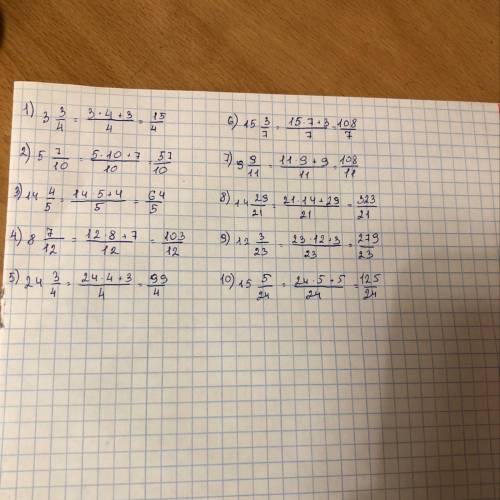 1) 3 3/4 = (3·4+3)/4 = 15/4
2) 5 7/10 = (5·10+7)/10 = 57/10
3) 14 4/5 = (14·5+4)/5 = 64/5
4) 8 7/12 = (12·8+7)/12 = 103/12
5) 24 3/4 = (24·4+3)/4 = 99/4
6) 15 3/7 = (15·7+3)/7 = 108/7
7) 9 9/11 = (11·9+9)/11 = 108/11
8) 14 29/21 = (21·14+29)/21 = 323/21
9) 12 3/23 = (23·12+3)/23 = 279/23
10) 15 5/24 = (24·5+5)/24 = 125/24